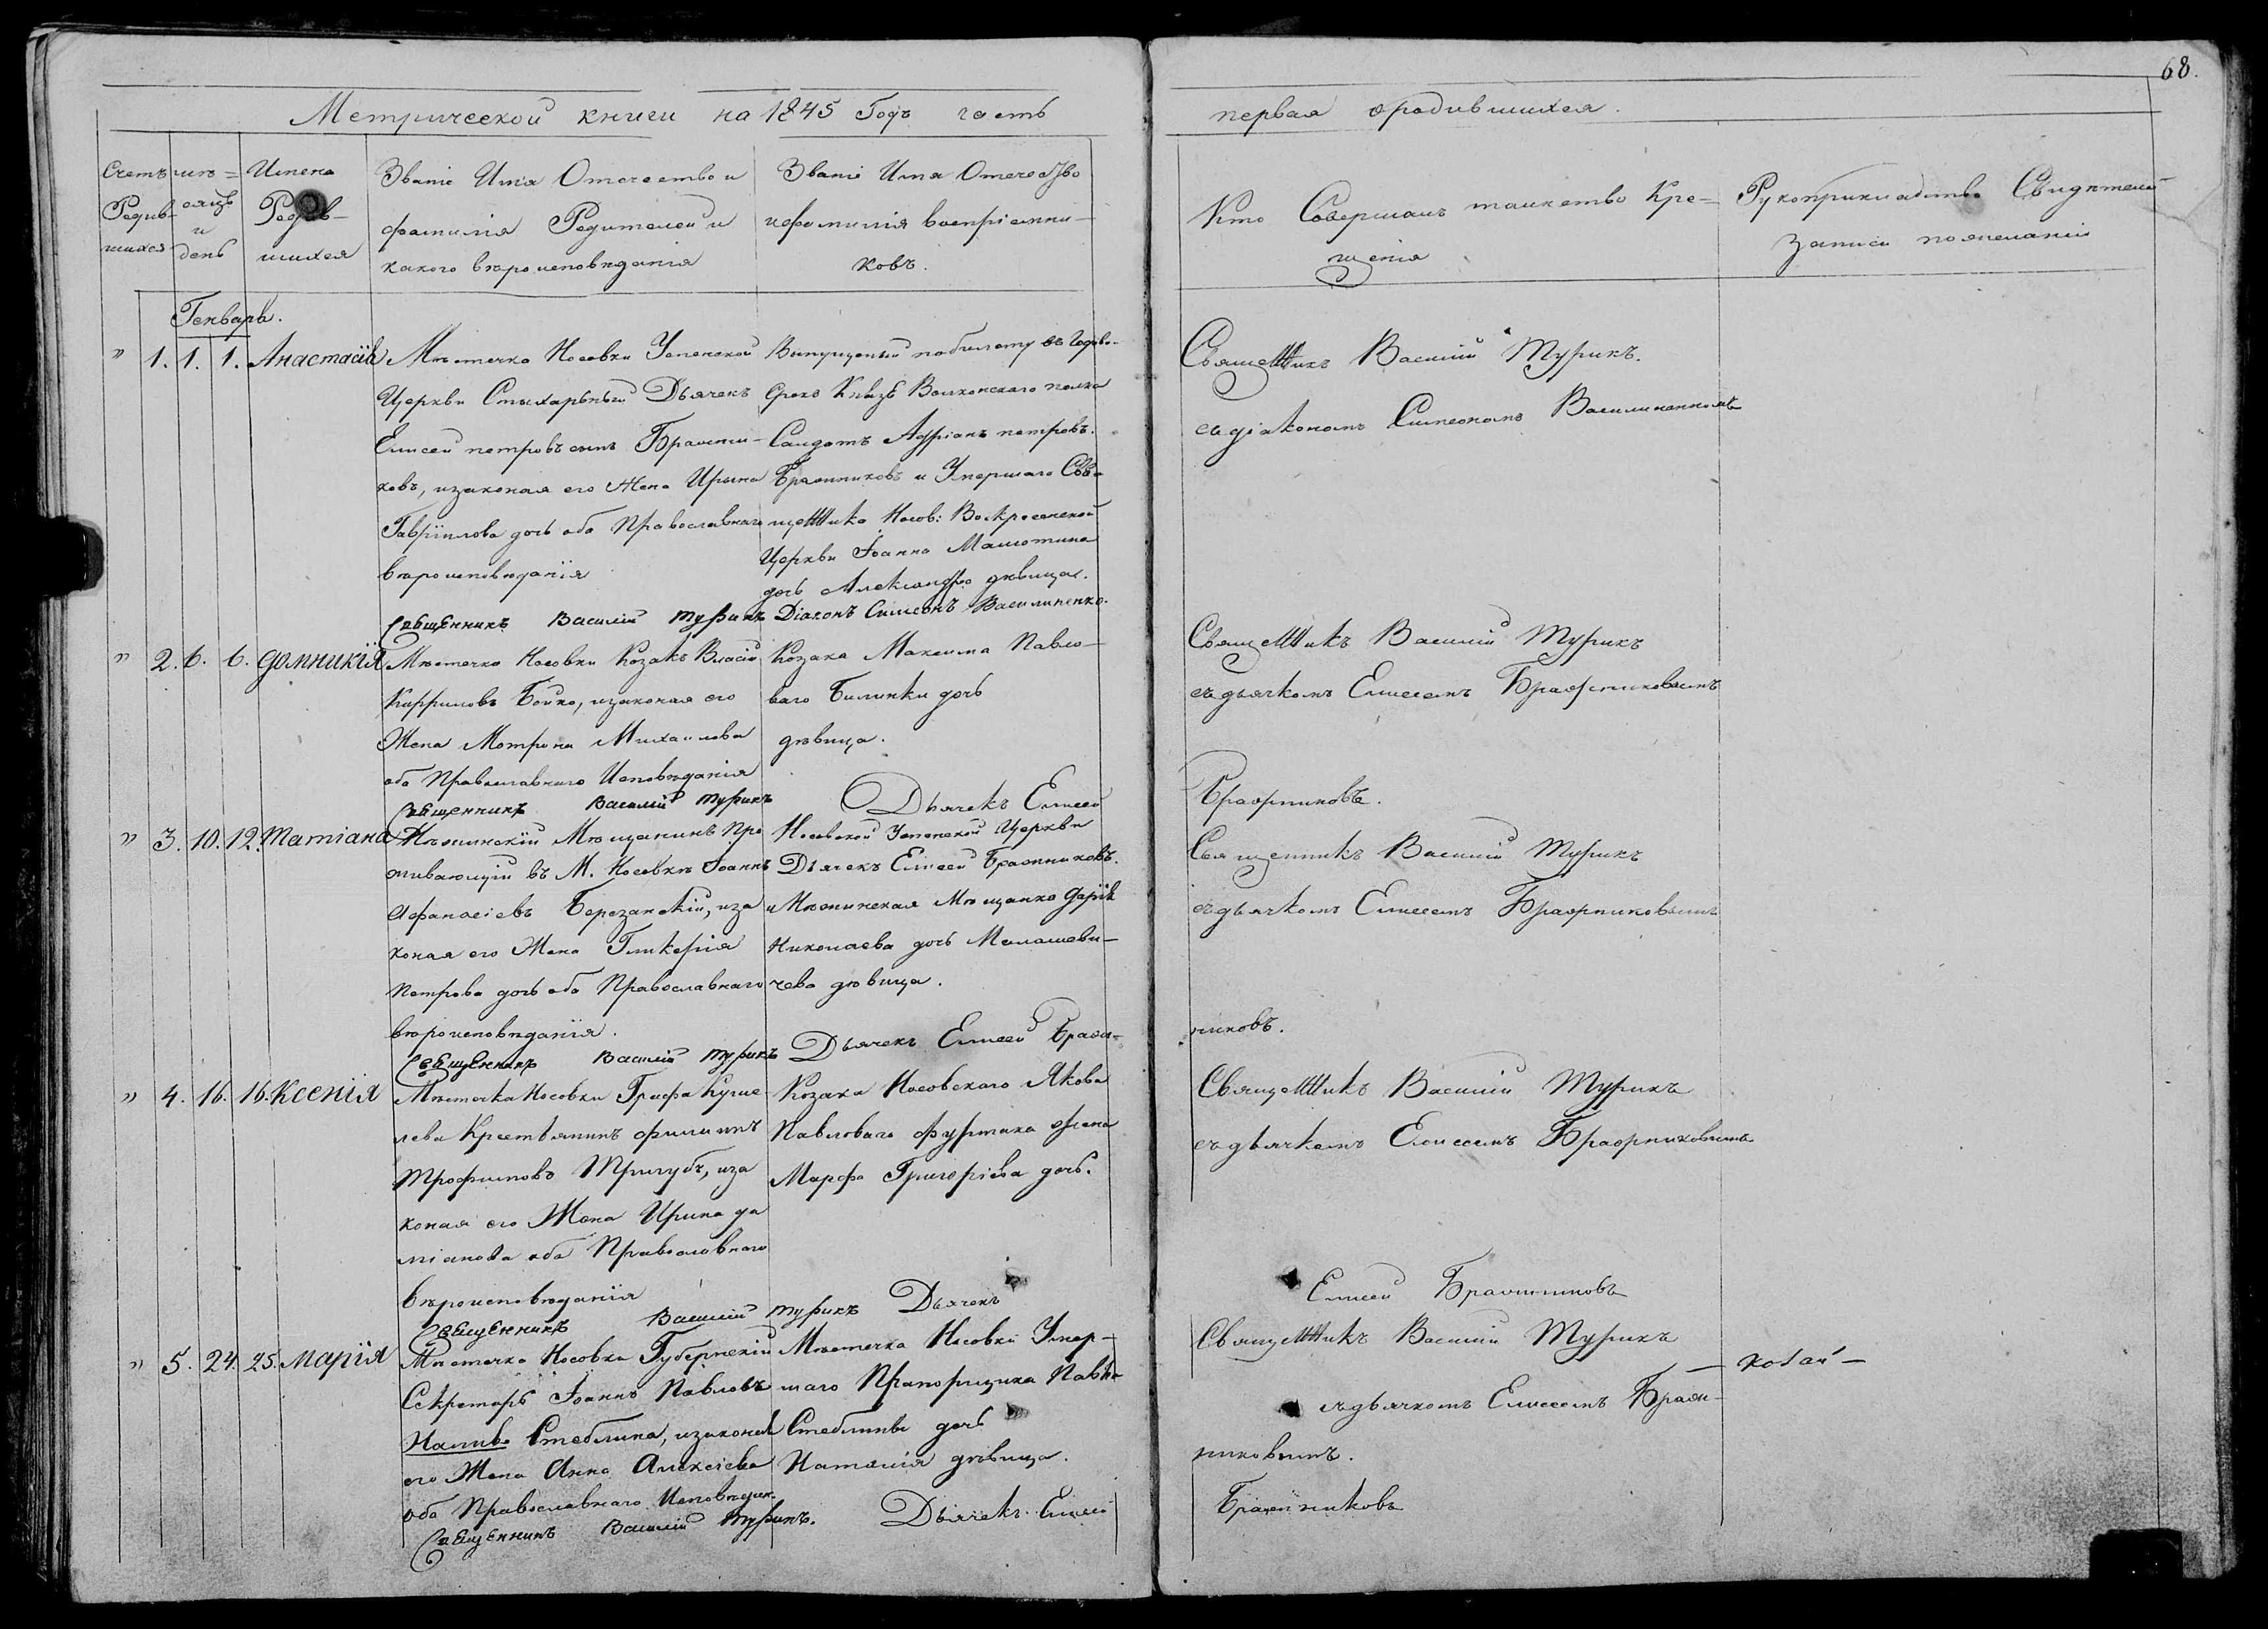 68.
Метрической книги на 1845 Годъ часть
первая о родившихся.
Счетъ Родив-шихся
мѣ=сяцъ и день
Имена Родив-шихся
Званіе Имя Отечество и
фамилія Родителей и
какого вѣроисповѣданія
Званіе Имя Отечество
и фамилія воспріемни-
ковъ.
Кто Совершалъ таинство Кре-
щенія
Рукоприкладство Свидѣтелей
записи по желанію
Генварь.
" 1. 1. 1. Анастасія
Мѣстечка Носовки Успенской
Церкви Стихарный Дьячекъ
Елисей петровъ сынъ Бражни-
ковъ, и законая его Жена Ирына
Гавріилова дочь оба Православнаго
вѣроисповѣданія
Выпущеный по билету въ Годово-
Срокъ Князя Волконскаго полка
Салдатъ Адріанъ петровъ.
Бражниковъ и Умершаго Свя-
щенника Носов: Воскресенской
Церкви Іоанна Малютина
дочь Александра дѣвица.
Священникъ Василій Турикъ.
съ діакономъ Симеономъ Василиненкомъ
Священникъ Василій Турикъ Діаконъ Симеонъ Василиненко.
" 2. 6. 6. Домникія
Мѣстечка Носовки Козакъ Власій
Кирриловъ Бойко, и законая его
Жена Мотрона Михаилова
оба Православнаго Исповѣданія
Козака Максима Павло-
ваго Билинки дочь
дѣвица.
Священникъ Василій Турикъ
съ дьячкомъ Елисеемъ Бражниковымъ
Священникъ Василій Турикъ Дьячекъ Елисей
Бражниковъ.
" 3. 10. 12. Татіана
Нѣжинскій Мѣщанинъ Про
живающій въ М. Носовкѣ Іоаннъ
Афанасіевъ Березанскій, и за
коная его Жена Гликерія
Петрова дочь оба Православнаго
вѣроисповѣданія.
Носовской Успенской Церкви
Дьячекъ Елисей Бражниковъ.
и Мѣжинская Мѣщанка Дарія
Николаева дочь Малашеви-
чева дѣвица.
Священникъ Василій Турикъ
съ дьячкомъ Елисеемъ Бражниковымъ
Священникъ Василій Турикъ Дьячекъ Елисей Бражн-
никовъ.
" 4. 16. 16. Ксенія
Мѣстечка Носовки Графа Куше
лева Крестьянинъ филиппъ
Трофимовъ Тригубъ, и за
коная его Жена Ирина да
міанова оба Православнаго
вѣроисповѣданія
Козака Носовскаго Якова
Павловаго Фурмана Жена
Марфа Григоріева дочь.
Священникъ Василій Турикъ
съ дьячкомъ Елисеемъ Бражниковымъ
Священникъ Василій Турикъ Дьячекъ
Елисей Бражниковъ
" 5. 24. 25. Марія
Мѣстечка Носовки Губернскій
Секретарь Іоаннъ Павловъ
Налива Стеблина, и законая
его Жена Анна Алексіева
оба Православнаго Исповѣдан.
Мѣстечка Носовки Умер-
шаго Прапорщика Павла
Стеблины дочь
Наталія дѣвица.
Священникъ Василій Турикъ
съ дьячкомъ Елисеемъ Бражн-
никовымъ.
Священникъ Василій Турикъ. Дьячекъ Елисей
Бражниковъ